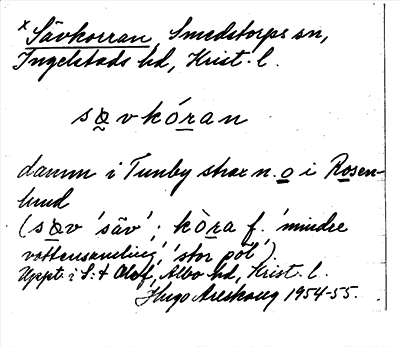 x Sävkorran, Smedstorps sn,
Ingelstads hd, Krist. l.
sævkóran
damm i Tunby strax n. o i Rosen-
lund
(sæv 'säv'; kòra f. 'mindre
vattensamling', 'stor pöl').
Uppt. i S:t Olof, Albo hd, Krist. l.
Hugo Areskoug 1954-55.